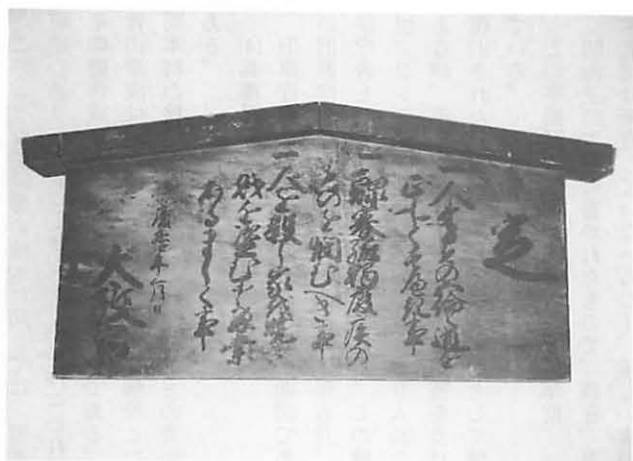 定
一人たるもの五倫之道を
正しくすへき事
一鰥寡孤獨癈疾の
ものを憫むへき事
一人を殺し家を焼き
財を盗む等之悪業
あるましく事
慶應四年三月
太政官